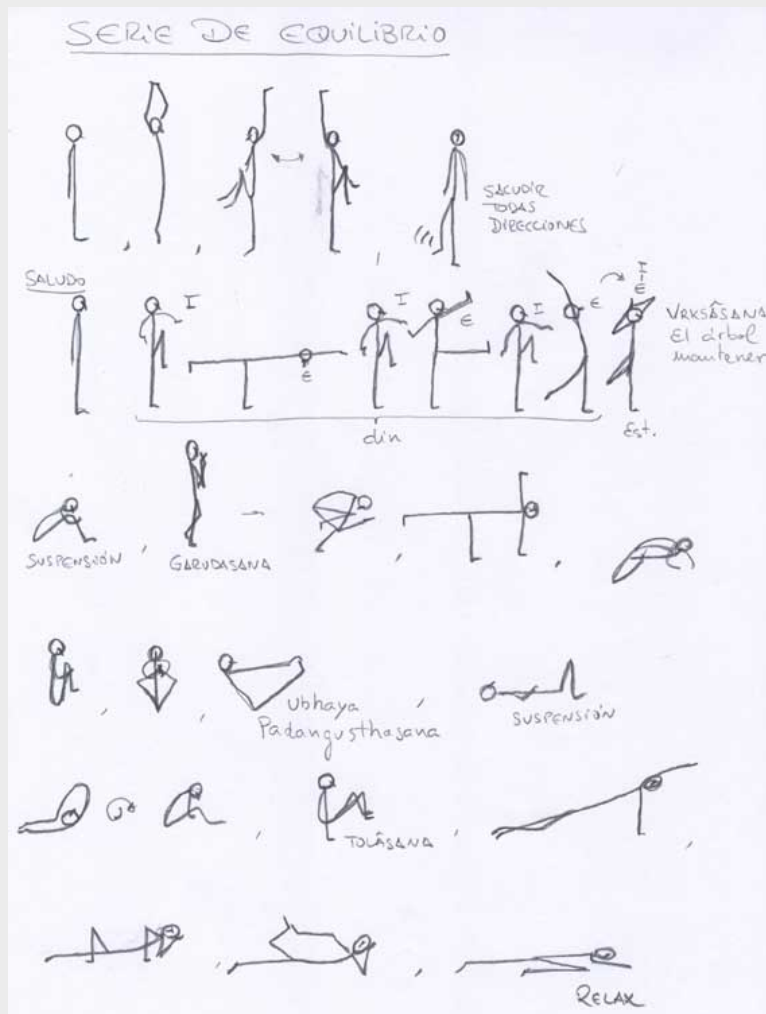 SERIE DE EQUILIBRIO
SACUDIR
TODAS
DIRECCIONES
SALUDO
I
E
I
E
I
E
I
E
VRKSÂSANA
El árbol
mantener
din
Est.
SUSPENSIÓN
GARUDASANA
Ubhaya
Padangusthasana
SUSPENSIÓN
TOLÂSANA
RELAX